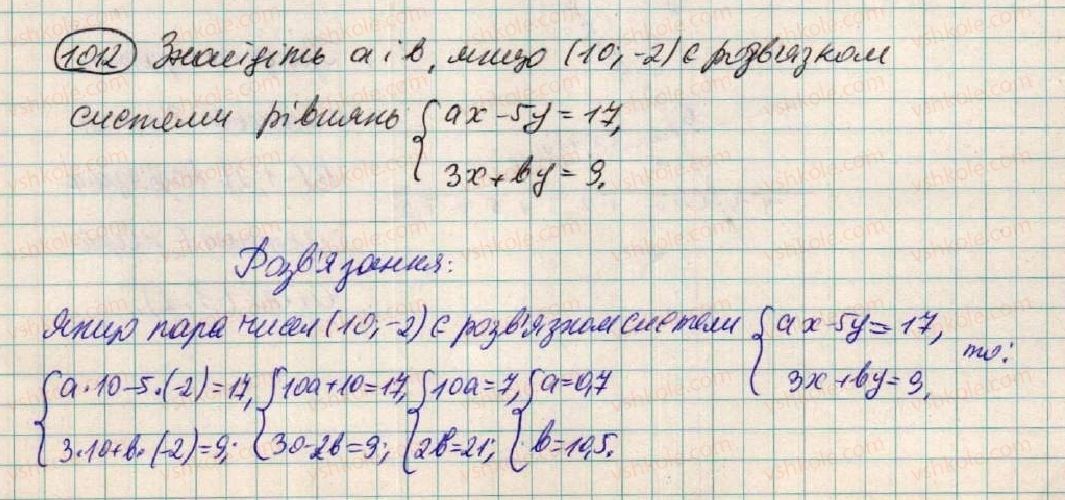 1012 Знайдіть a і b, якщо (10; -2) є розв'язком
системи рівнянь { ax - 5y = 17,
3x + by = 9.
Розв'язання:
Якщо пара чисел (10; -2) є розв'язком системи { ax - 5y = 17,
3x + by = 9,
то:
{ a·10 - 5·(-2) = 17, { 10a + 10 = 17, { 10a = 7, { a = 0,7
3·10 + b·(-2) = 9; 30 - 2b = 9; 2b = 21; b = 10,5.